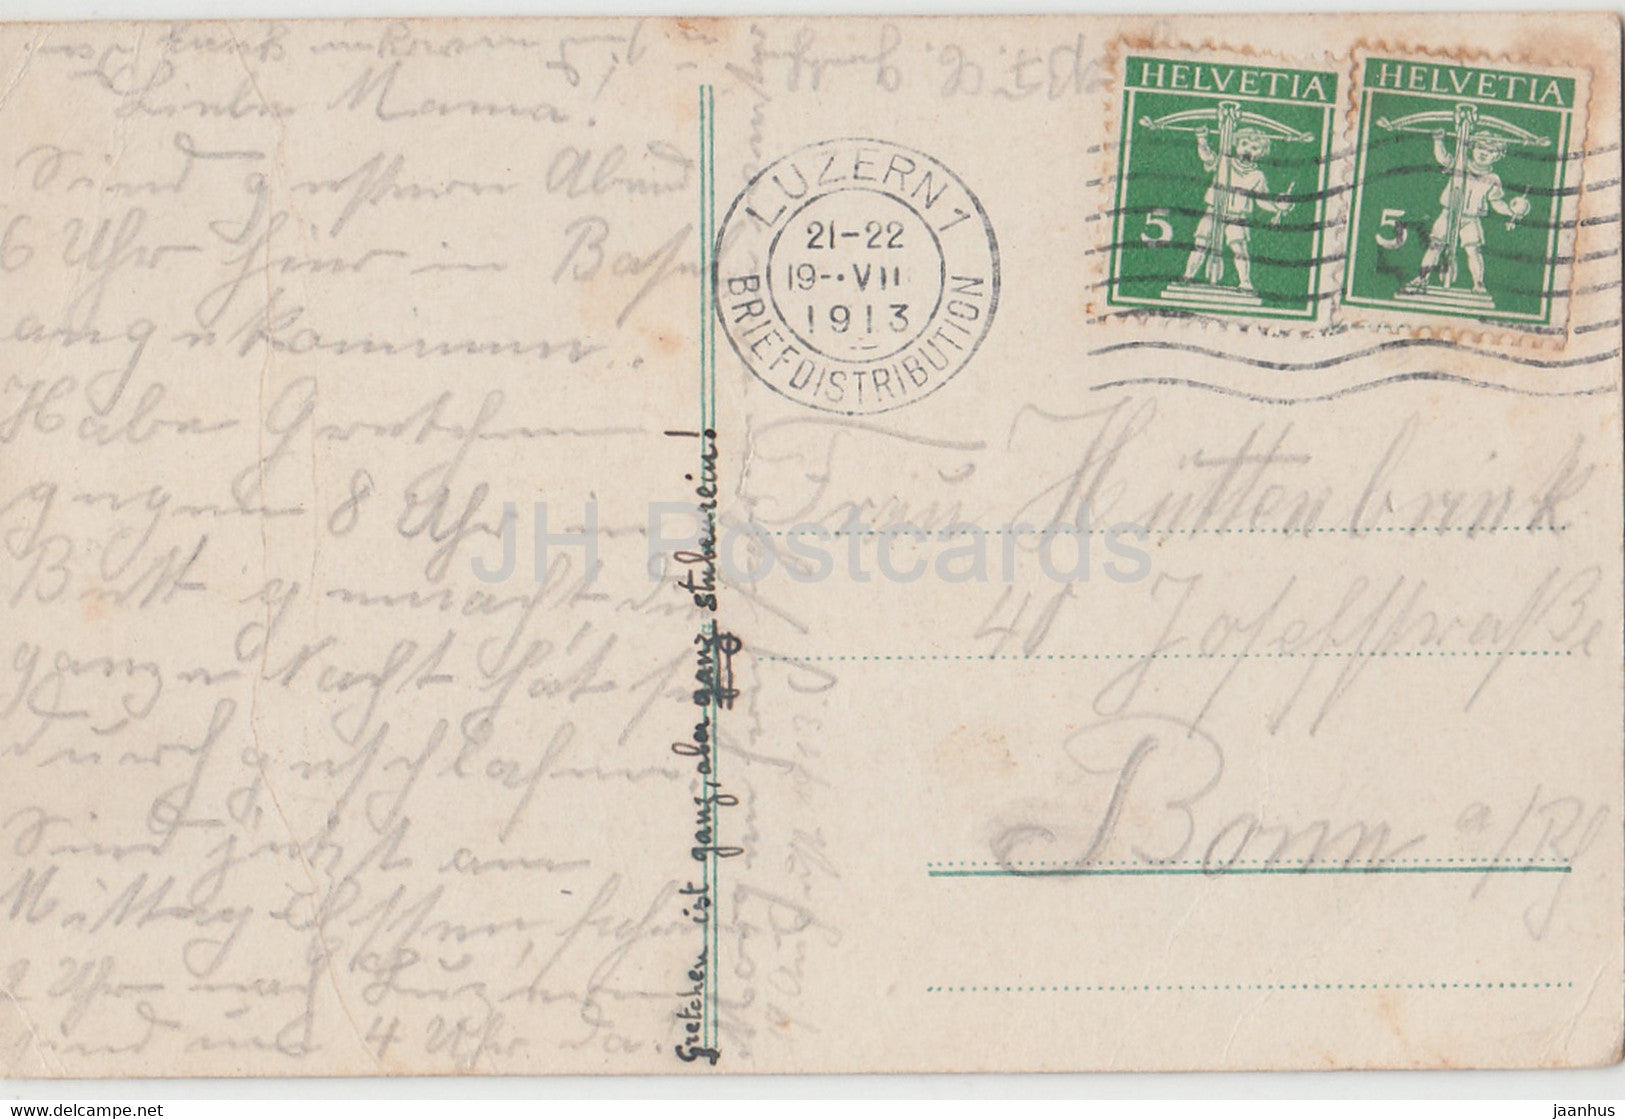 Liebe Mama!
Sind gestern Abend
6 Uhr hier in Basel
angekommen.
Habe Gretchen
gegen 8 Uhr ins
Bett gemacht, die
ganze Nacht hat sie
durchgeschlafen.
Sind jetzt am
Mittag Essen, fahren
2 Uhr nach Luzern
sind um 4 Uhr da.
Gretchen ist ganz, aber ganz stubenrein!
LUZERN 1
21-22
19-·VII
1913
BRIEFDISTRIBUTION
HELVETIA
5
HELVETIA
5
Frau Hüttenbrink
40 Josefstraße
Bonn a/Rh.
JH Postcards
www.delcampe.net
jaanhus